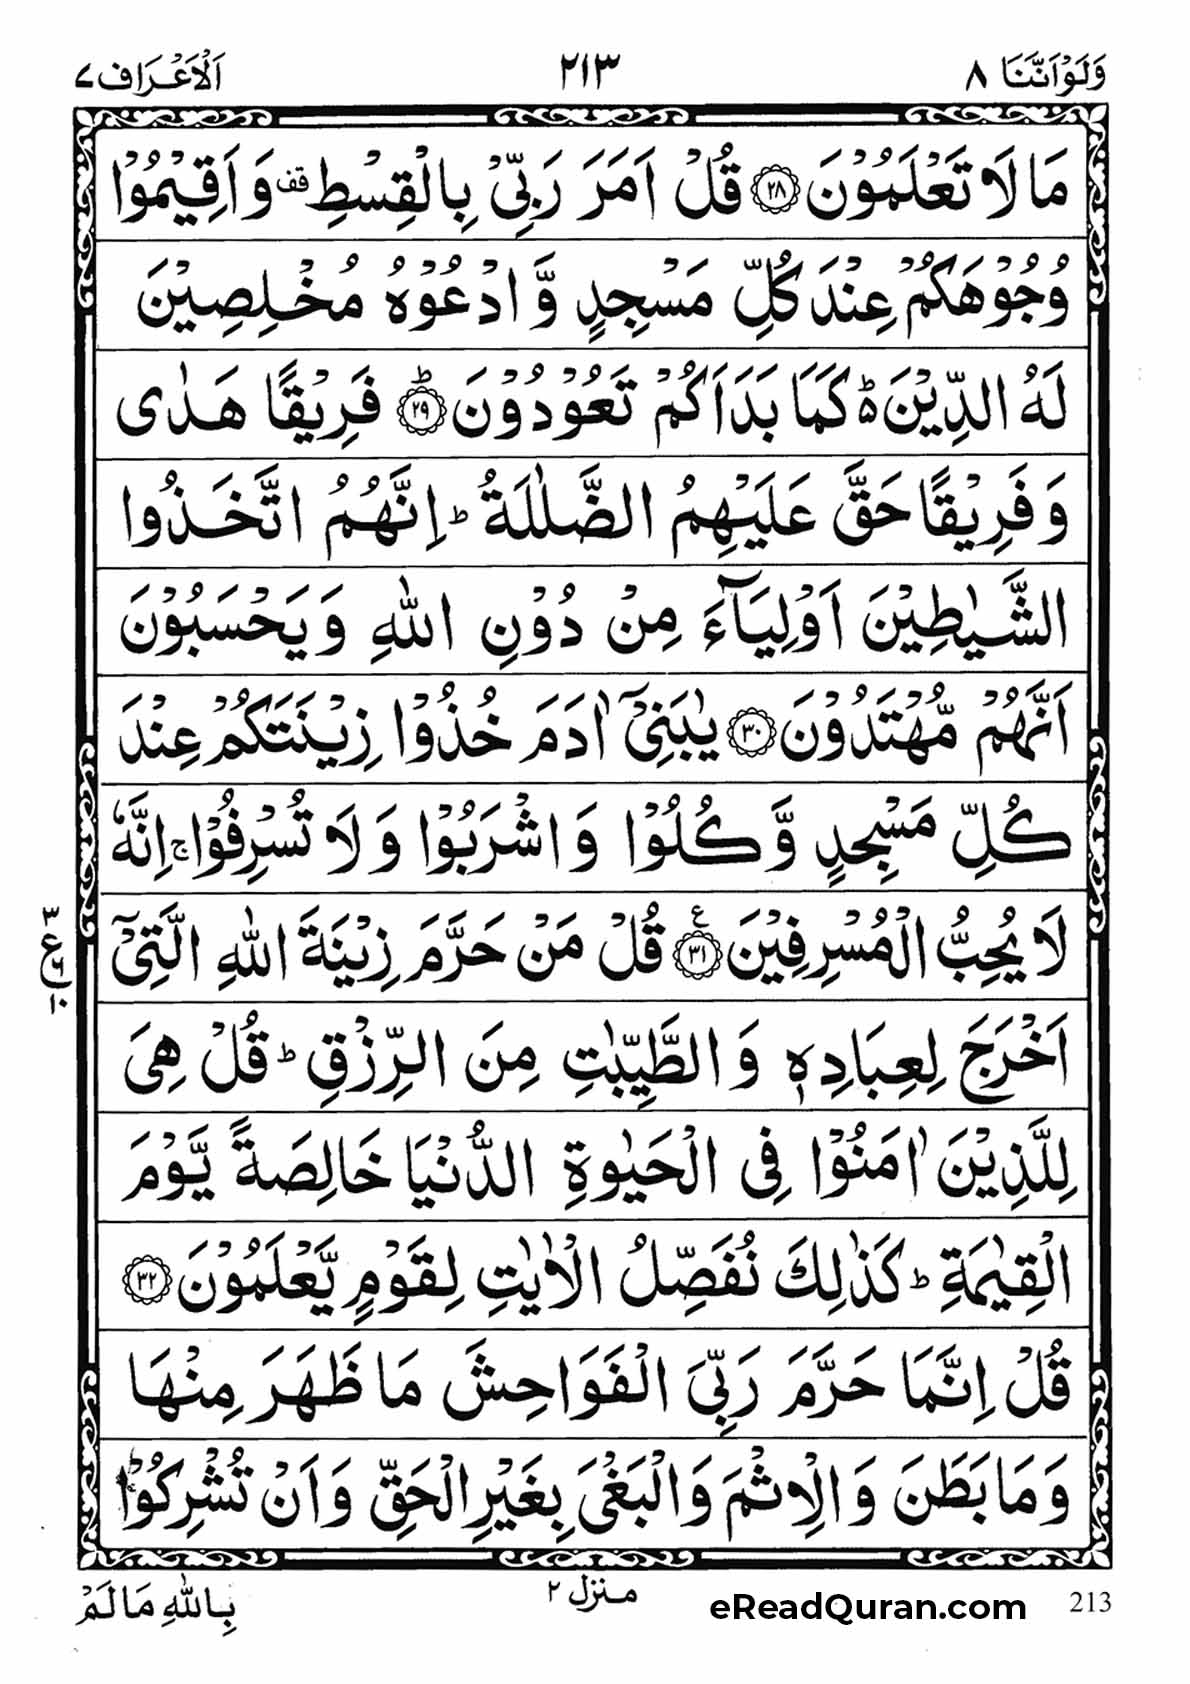 وَلَوْ اَنَّنَا ٨ ٢١٣ اَلْاَعْرَاف ٧
مَا لَا تَعْلَمُوْنَ ﴿٢٨﴾ قُلْ اَمَرَ رَبِّىْ بِالْقِسْطِ ۫ قف وَ اَقِيْمُوْا
وُجُوْهَكُمْ عِنْدَ كُلِّ مَسْجِدٍ وَّ ادْعُوْهُ مُخْلِصِيْنَ
لَهُ الدِّيْنَ ؕ۬ كَمَا بَدَاَكُمْ تَعُوْدُوْنَ ؕ﴿٢٩﴾ فَرِيْقًا هَدٰى
وَ فَرِيْقًا حَقَّ عَلَيْهِمُ الضَّلٰلَةُ ؕ اِنَّهُمُ اتَّخَذُوا
الشَّيٰطِيْنَ اَوْلِيَآءَ مِنْ دُوْنِ اللّٰهِ وَ يَحْسَبُوْنَ
اَنَّهُمْ مُّهْتَدُوْنَ ﴿٣٠﴾ يٰبَنِىْۤ اٰدَمَ خُذُوْا زِيْنَتَكُمْ عِنْدَ
كُلِّ مَسْجِدٍ وَّ كُلُوْا وَ اشْرَبُوْا وَ لَا تُسْرِفُوْا ۚ اِنَّهٗ
لَا يُحِبُّ الْمُسْرِفِيْنَ ﴿٣١﴾ ع قُلْ مَنْ حَرَّمَ زِيْنَةَ اللّٰهِ الَّتِىْۤ
٣ ع ٦ ١٠
اَخْرَجَ لِعِبَادِهٖ وَ الطَّيِّبٰتِ مِنَ الرِّزْقِ ؕ قُلْ هِىَ
لِلَّذِيْنَ اٰمَنُوْا فِى الْحَيٰوةِ الدُّنْيَا خَالِصَةً يَّوْمَ
الْقِيٰمَةِ ؕ كَذٰلِكَ نُفَصِّلُ الْاٰيٰتِ لِقَوْمٍ يَّعْلَمُوْنَ ﴿٣٢﴾
قُلْ اِنَّمَا حَرَّمَ رَبِّىَ الْفَوَاحِشَ مَا ظَهَرَ مِنْهَا
وَ مَا بَطَنَ وَ الْاِثْمَ وَ الْبَغْىَ بِغَيْرِ الْحَقِّ وَ اَنْ تُشْرِكُوْا
بِاللّٰهِ مَا لَمْ
منزل ٢
eReadQuran.com
213